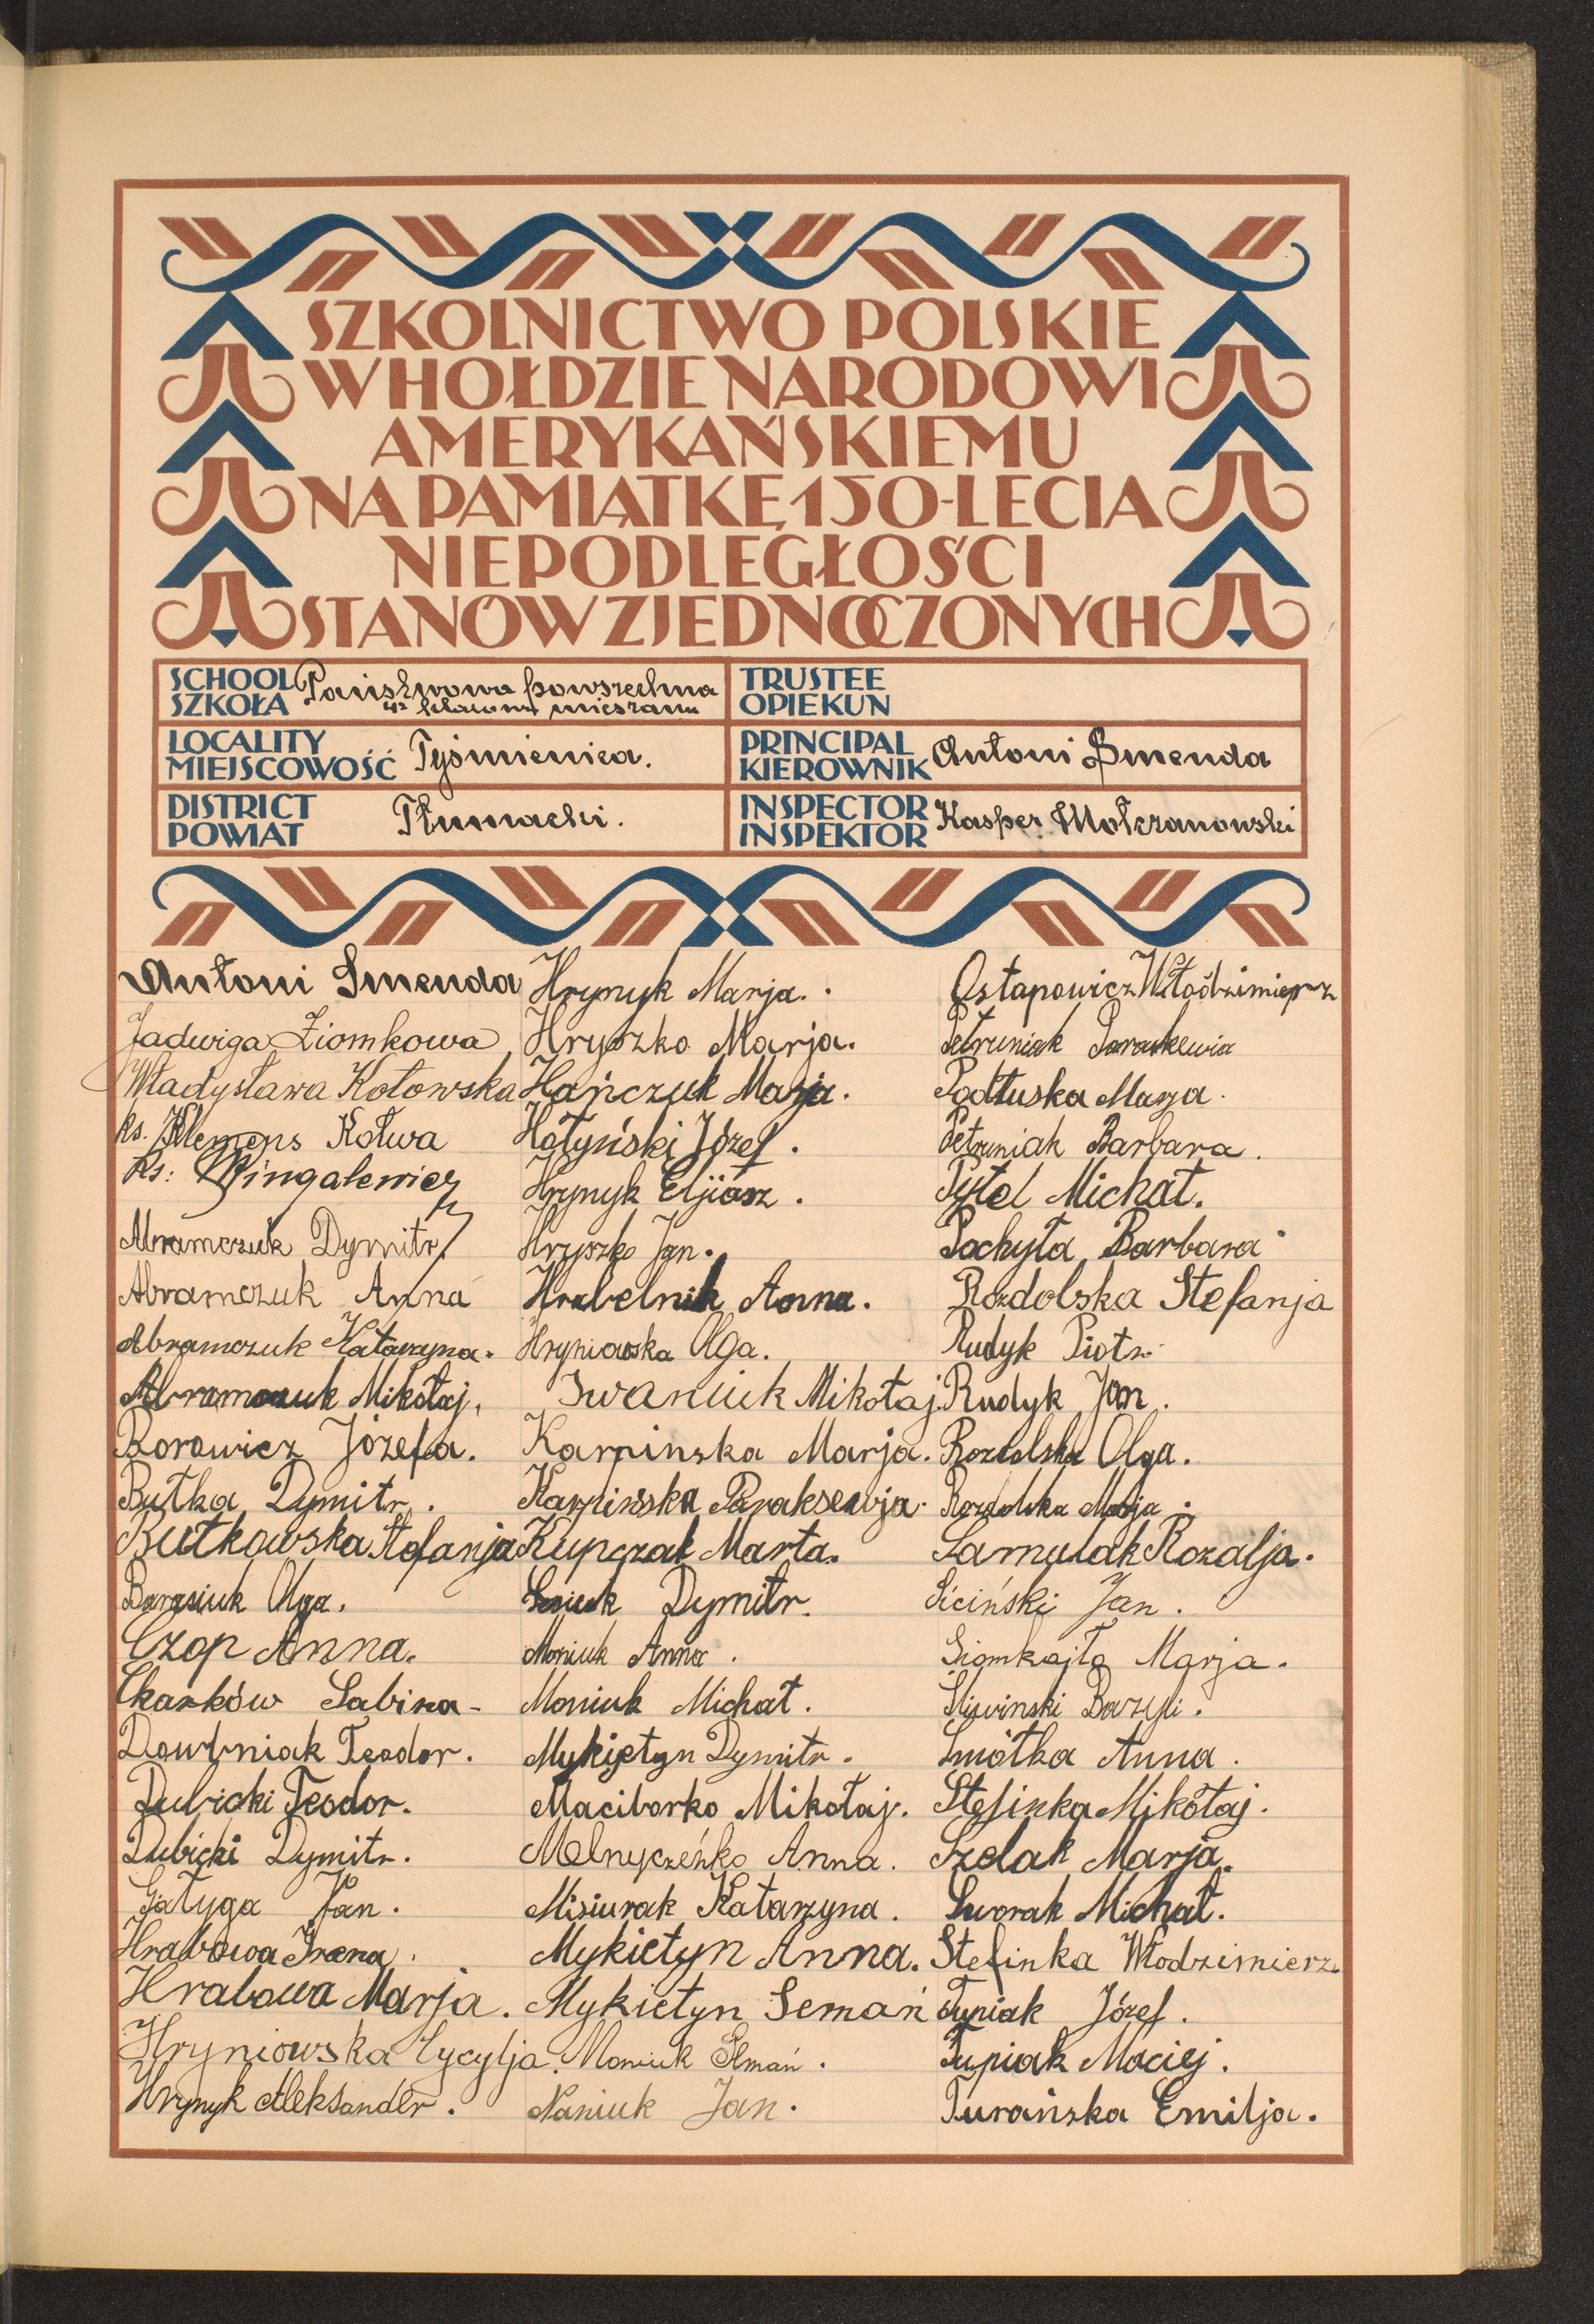 SZKOLNICTWO POLSKIE
W HOŁDZIE NARODOWI
AMERYKAŃSKIEMU
NA PAMIĄTKĘ 150-LECIA
NIEPODLEGŁOŚCI
STANÓW ZJEDNOCZONYCH
SCHOOL
SZKOŁA
Państwowa powszechna
mieszana
TRUSTEE
OPIEKUN
LOCALITY
MIEJSCOWOŚĆ
Tyśmienica.
PRINCIPAL
KIEROWNIK
Antoni Smenda
DISTRICT
POWIAT
Tłumacki.
INSPECTOR
INSPEKTOR
Kasper Mołczanowski
Antoni Smenda
Jadwiga Ziomkowa
Władysława Kotowska
ks. Klemens Kotwa
ks:
Abramczuk Dymitr
Abramczuk Anna
Abramczuk Katarzyna.
Abramczuk Mikołaj.
Borowicz Józefa.
Butka Dymitr.
Butkowska Stefanja
Barasiuk Olga.
Czop Anna.
Sabina
Teodor.
Dubicki Teodor.
Dubicki Dymitr.
Gałyga Jan.
Hrabowa Irena.
Hrabowa Marja.
Hryniowska Cycylja.
Hrynyk Aleksander.
Hrynyk Marja.
Hryszko Marja.
Hańczuk Marja.
Hołyński Józef.
Hrynyk Eljiasz.
Hryszko Jan.
Hrabelnik Anna.
Hryniowska Olga.
Iwaniuk Mikołaj.
Karpinska Marja.
Karpińska Paraksewja.
Kupczak Marta.
Dymitr.
Moniuk Anna.
Moniuk Michał.
Mykietyn Dymitr.
Maciborko Mikołaj.
Melnyczeńko Anna.
Misiurak Katarzyna.
Mykietyn Anna.
Mykietyn Semań
Moniuk Semań.
Naniuk Jan.
Ostapowicz Włodzimierz
Petruniak Paraskewia
Podłuska Marja.
Petruniak Barbara.
Pytel Michał.
Pochyła Barbara
Rozdolska Stefanja
Rudyk Piotr.
Rudyk Jan.
Rozdolska Olga.
Rozdolska Marja.
Sarnulak Rozalja.
Siciński Jan.
Siomkajło Marja.
Śliwinski Bazyli.
Smotka Anna.
Stefinka Mikołaj.
Szelak Marja.
Sworak Michał.
Stefinka Włodzimierz.
Tupiak Józef.
Tupiak Maciej.
Turańska Emilja.